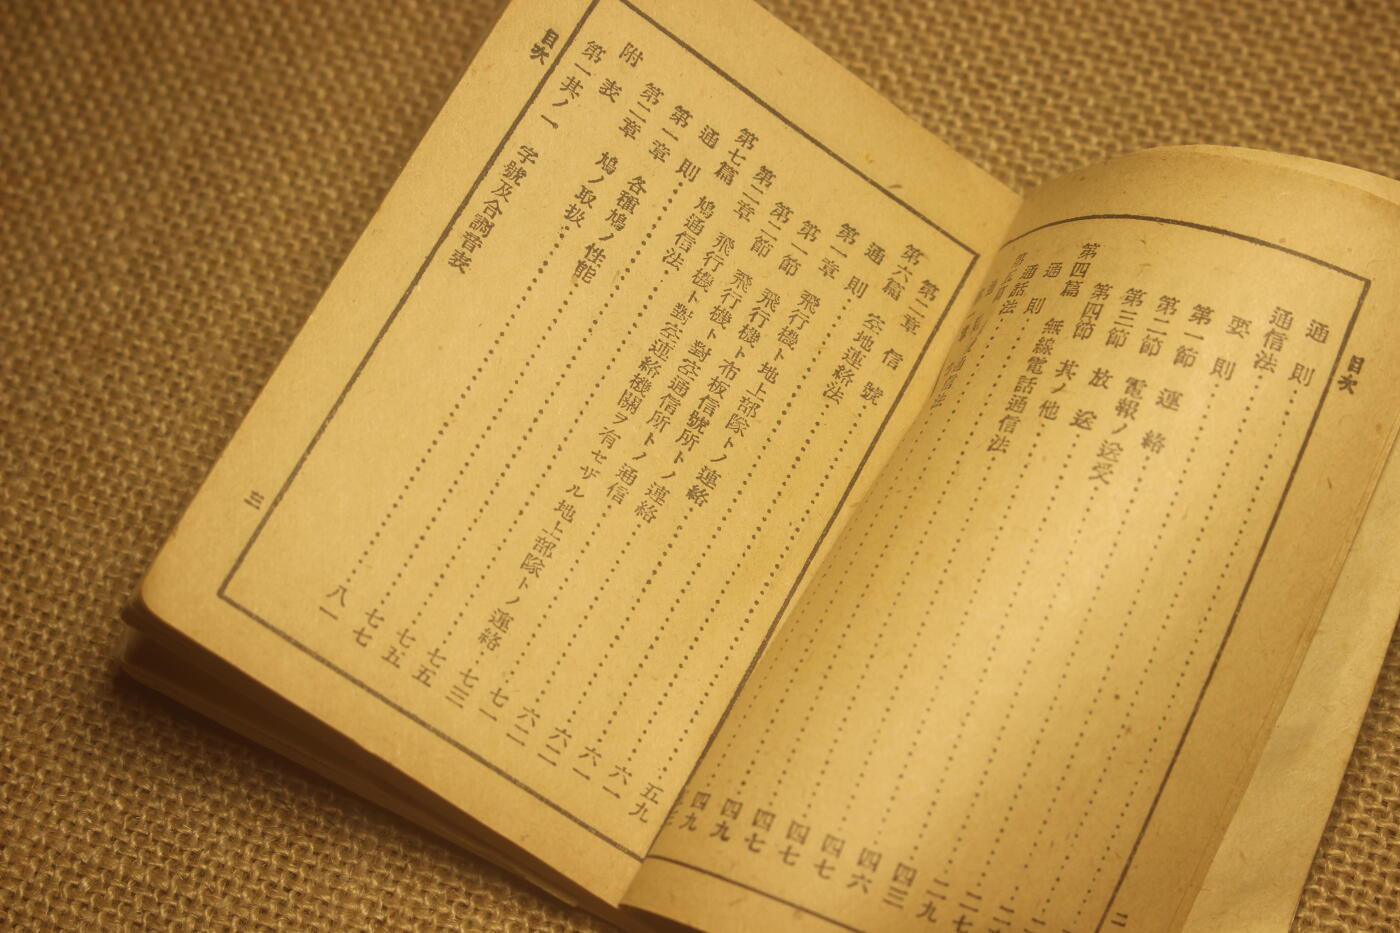 目次
通則
通信法
要則
第一節 連絡 二七
第二節 電報ノ送受 二九
第三節 放送 四三
第四節 其ノ他 四六
第四篇 無線電話通信法 四七
通則 四七
通話法 四七
四九
四九
二
第二章 信號 五九
第六篇 空地連絡法 六一
通則 六一
第一章 飛行機ト地上部隊トノ連絡 六二
第一節 飛行機ト布板信號所トノ連絡 六二
第二節 飛行機ト對空通信所トノ通信 七一
第二章 飛行機ト對空連絡機關ヲ有セザル地上部隊トノ連絡 七三
第七篇 鳩通信法 七五
通則 七五
第一章 各種鳩ノ性能 七七
第二章 鳩ノ取扱 八一
附表
第一其ノ一。 字號及合調音表
目次
三